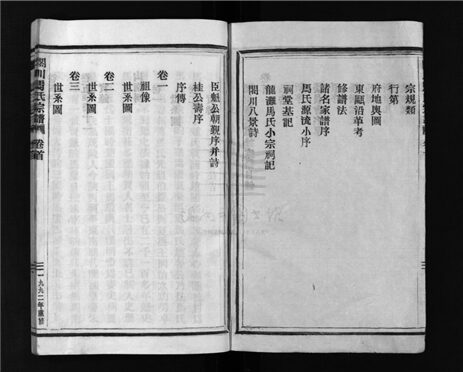 宗規類
行第
府地輿圖
東甌沿革考
修譜法
諸名家譜序
馬氏源流小序
祠堂基記
龍灘馬氏小宗祠記
閭川八景詩
臣魁公朝覲序并詩
桂公壽序
序傳
卷一
祖像
世系圖
卷二
世系圖
卷三
世系圖
馬氏宗譜
卷首
一九九二年重修